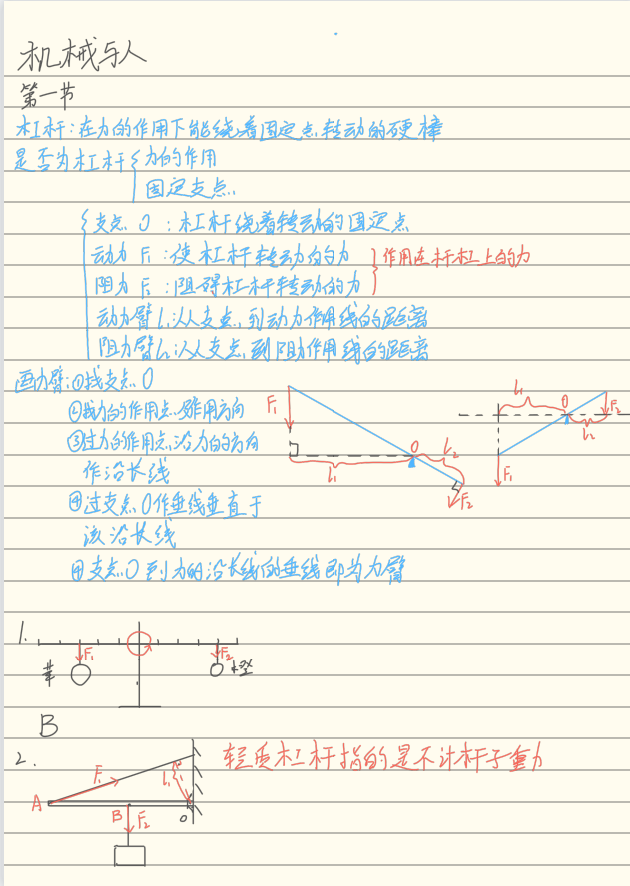 机械与人
第一节
杠杆:在力的作用下能绕着固定点转动的硬棒
是否为杠杆{力的作用
固定支点.
支点 O :杠杆绕着转动的固定点
动力 F₁:使杠杆转动的力
阻力 F₂:阻碍杠杆转动的力
}作用在杆杠上的力
动力臂l₁:从支点到动力作用线的距离
阻力臂l₂:从支点到阻力作用线的距离
画力臂:①找支点O
②找力的作用点、作用方向
③过力的作用点,沿力的方向
作沿长线
④过支点O作垂线垂直于
该沿长线
⊕支点O到力的沿长线的垂线即为力臂
F₁
l₁
O
l₂
F₂
l₁
O
F₂
l₂
F₁
1.
F₁
F₂
B
2.
轻质杠杆指的是不计杆子重力
F₁
l₁
A
B
F₂
O